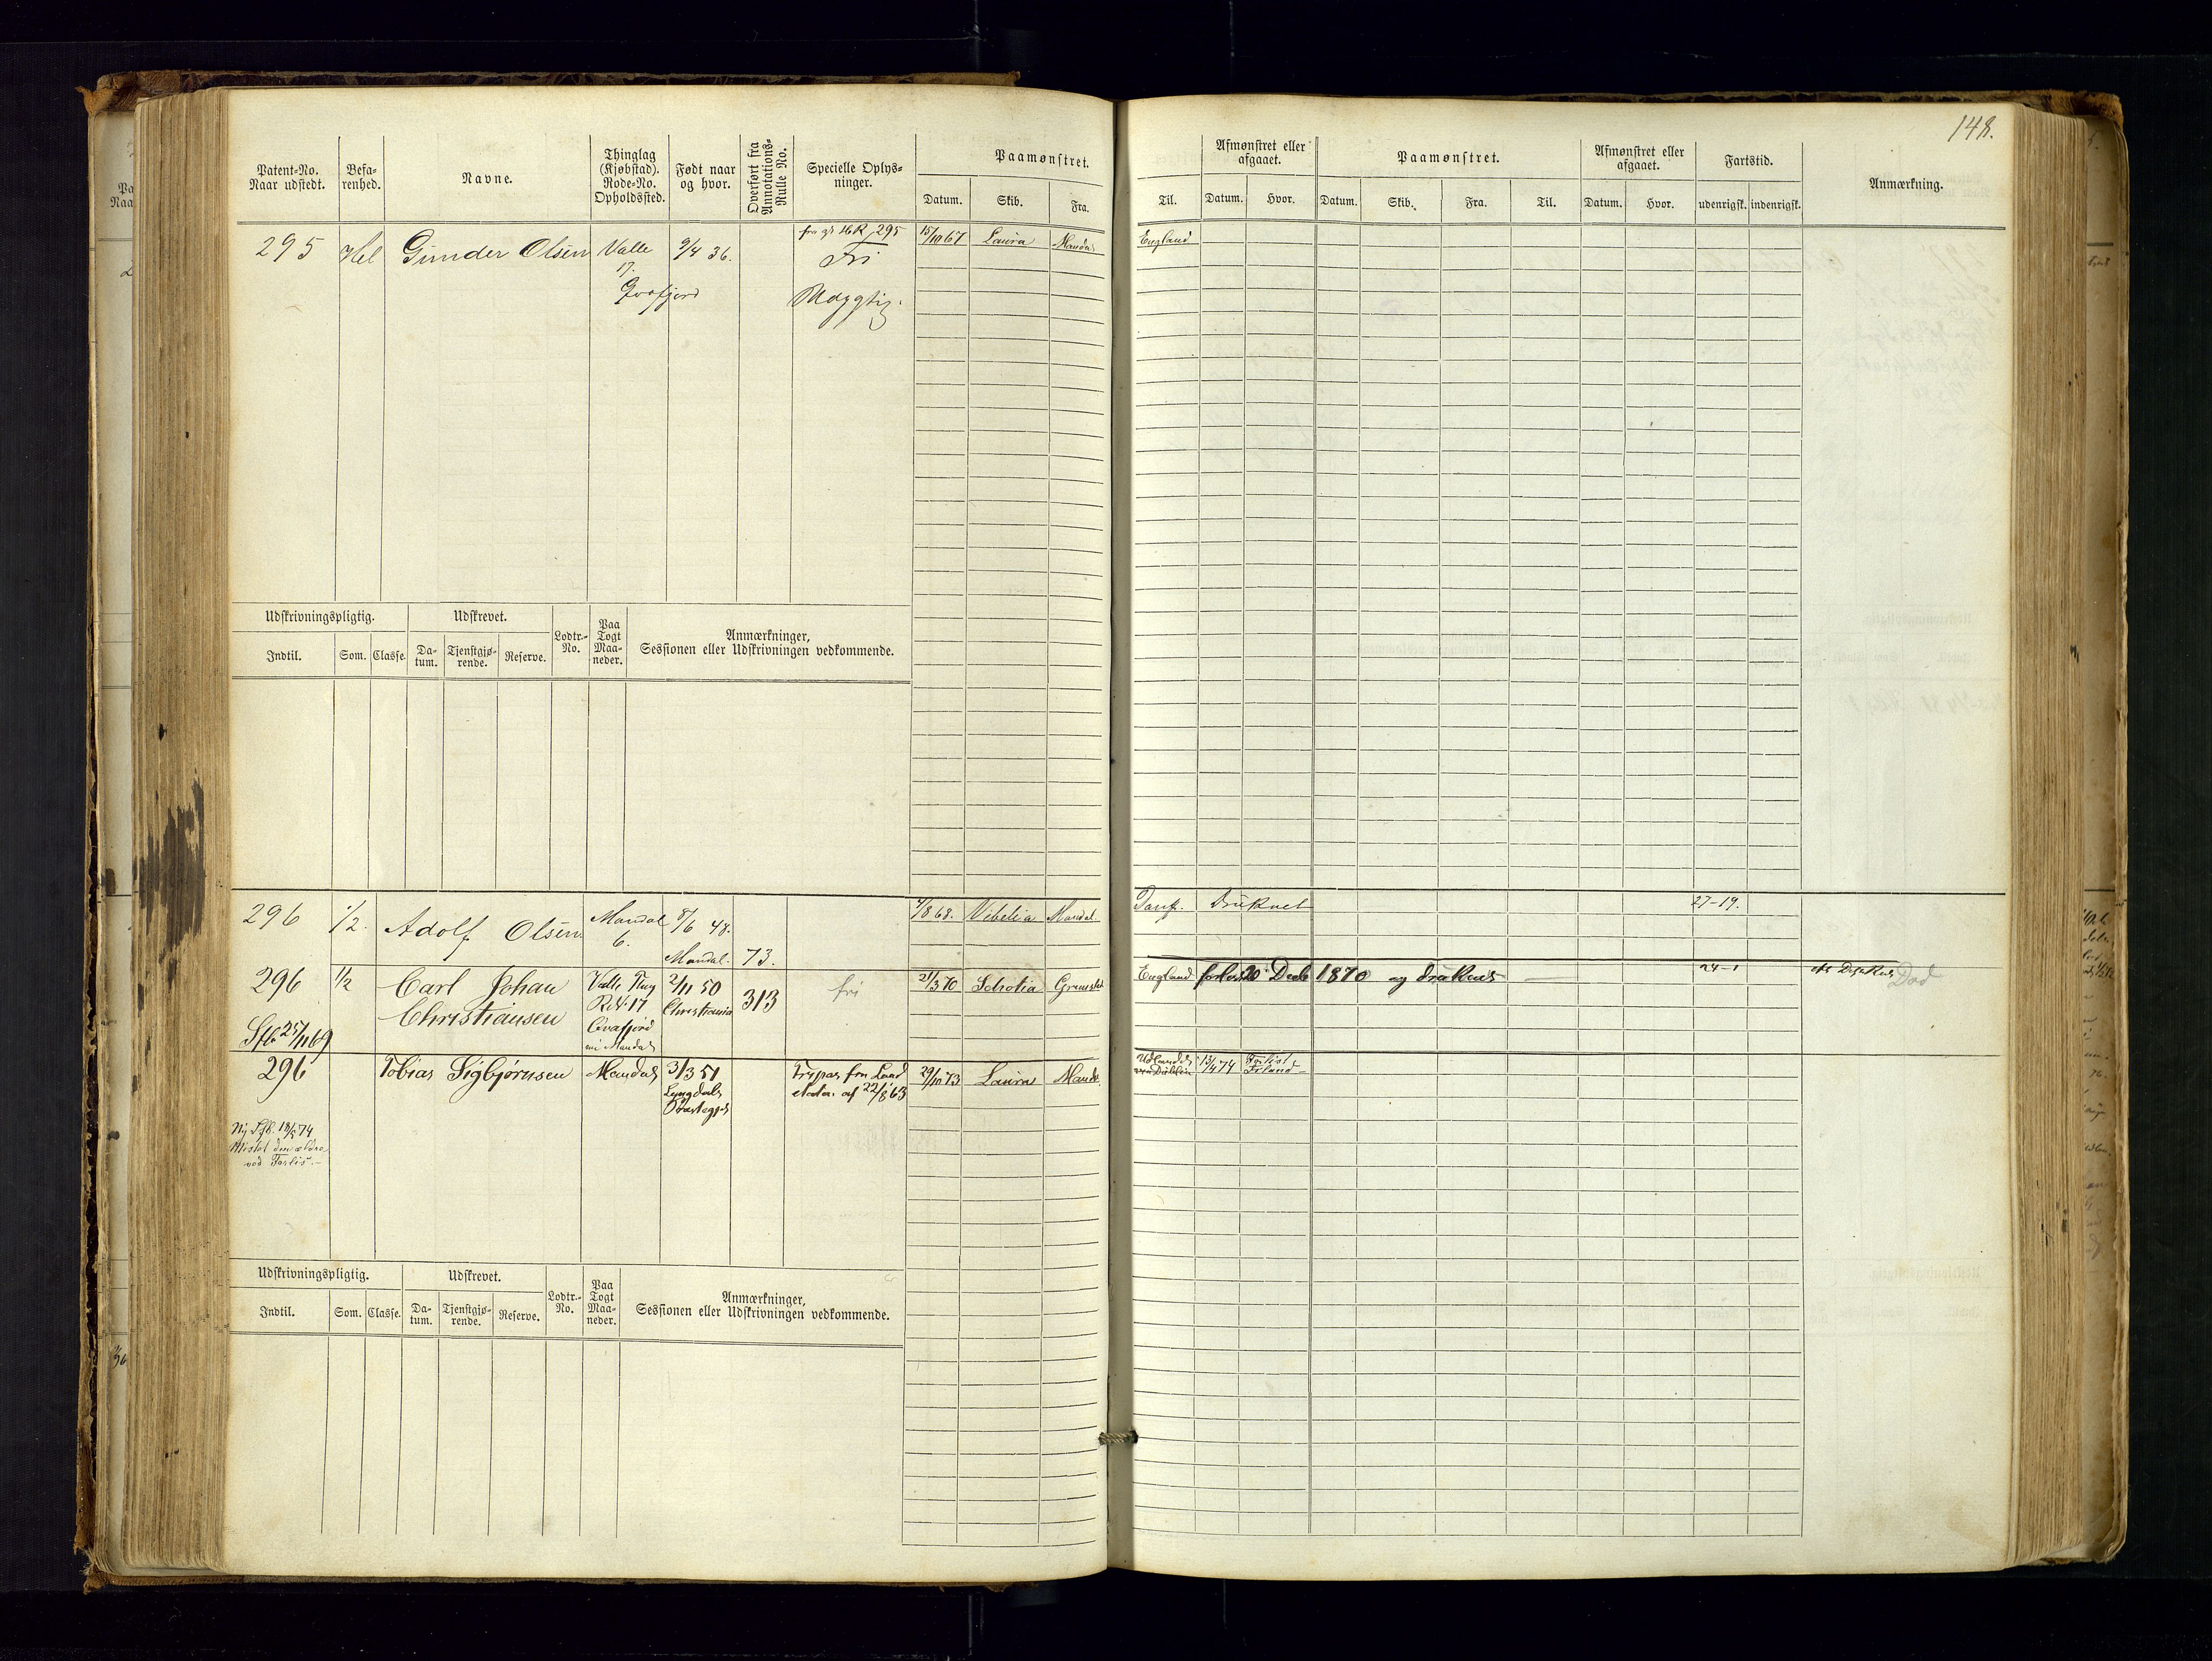 148.
Patent-No.
Naar udstedt.
Befa-
renhed.
Navne.
Thinglag
(Kjøbstad).
Rode-No.
Opholdssted.
Født naar
og hvor.
Overført fra
Annotations-
Rulle No.
Specielle Oplys-
ninger.
Paamønstret.
Datum.
Skib.
Fra.
Til.
Afmønstret eller
afgaaet.
Datum.
Hvor.
Paamønstret.
Datum.
Skib.
Fra.
Til.
Afmønstret eller
afgaaet.
Datum.
Hvor.
Fartstid.
udenrigsk.
indenrigsk.
Anmærkning.
295
Hel
Gunder Olsen
Valle
17.
9/4 36.
295
Fri
15/10 67
Laura
Mandal
England
Udskrivningspligtig.
Indtil.
Som.
Classe.
Udskrevet.
Da-
tum.
Tjenstgjø-
rende.
Reserve.
Lodtr.-
No.
Paa
Togt
Maa-
neder.
Anmærkninger,
Sessionen eller Udskrivningen vedkommende.
296
1/2.
Adolf Olsen
Mandal
6.
8/6 48.
Mandal.
73.
4/8 68.
Vibelia
Mandal
Druknet
27-19.
296
Sfb 25/11 69
1/2
Carl Johan
Christiansen
Valle Ting
R.N. 17
Mandal
2/11 50
Christiania
313
fri
21/3 70
Schotia
Grimstad
England
forlist 20 Decbr 1870 og druknet
24-1
Død
296
Tobias Sigbjørnsen
Mandal
3/3 51
Lyngdals
Præstegjd
Fripas fra Land
etaten af 22/8 63
29/10 73
Laura
Mandal
Udlandet
13/4 74
Forlist
Irland
Ny Sfb. 18/5 74
Mistet den ældre
ved Forlis.
Udskrivningspligtig.
Indtil.
Som.
Classe.
Udskrevet.
Da-
tum.
Tjenstgjø-
rende.
Reserve.
Lodtr.-
No.
Paa
Togt
Maa-
neder.
Anmærkninger,
Sessionen eller Udskrivningen vedkommende.